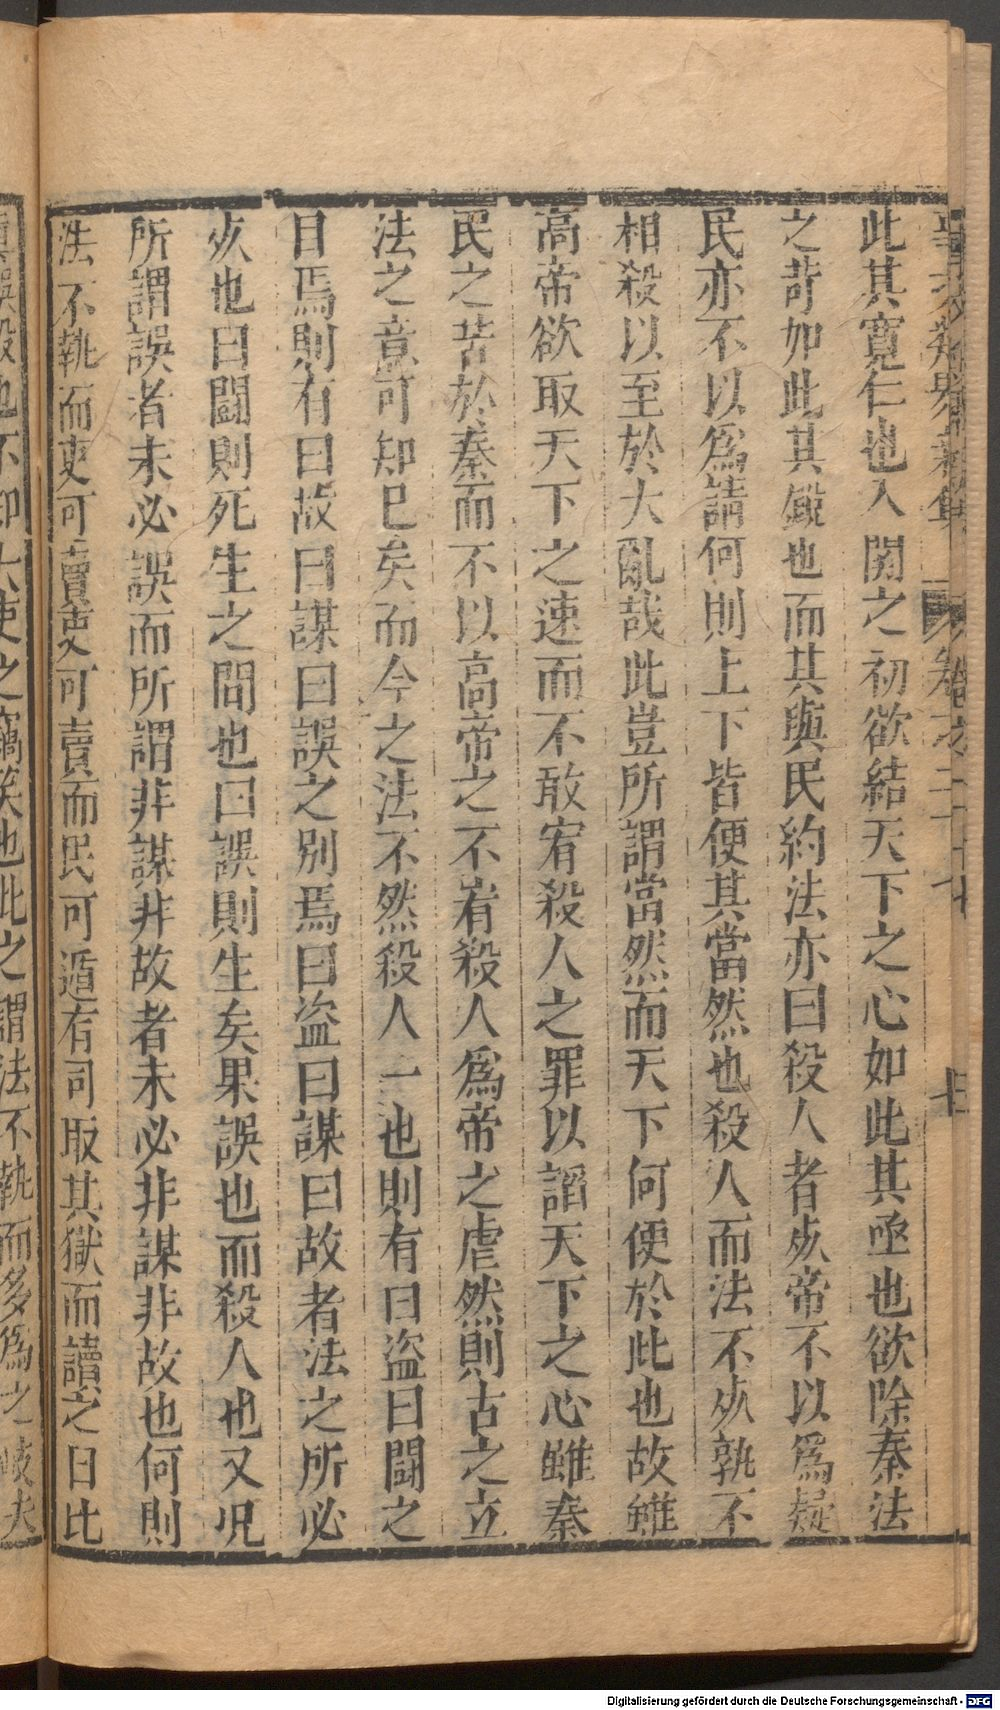 此其寬仁也入關之初欲結天下之心如此其亟也欲除秦法
之苛如此其銳也而其與民約法亦曰殺人者死帝不以爲疑
民亦不以爲請何則上下皆便其當然也殺人而法不死孰不
相殺以至於大亂哉此豈所謂當然而天下何便於此也故雖
高帝欲取天下之速而不敢宥殺人之罪以謟天下之心雖秦
民之苦於秦而不以高帝之不宥殺人爲帝之虐然則古之立
法之意可知已矣而今之法不然殺人一也則有曰盜曰鬬之
目焉則有曰故曰謀曰誤之別焉曰盜曰謀曰故者法之所必
死也曰鬬則死生之間也曰誤則生矣果誤也而殺人也又況
所謂誤者未必誤而所謂非謀非故者未必非謀非故也何則
法不執而吏可賣吏可賣而民可遁有司取其獄而讀之曰比
卷之二十七
眞誤殺也不知大吏之竊笑也此之謂法不執而多爲之岐夫
Digitalisierung gefördert durch die Deutsche Forschungsgemeinschaft - DFG